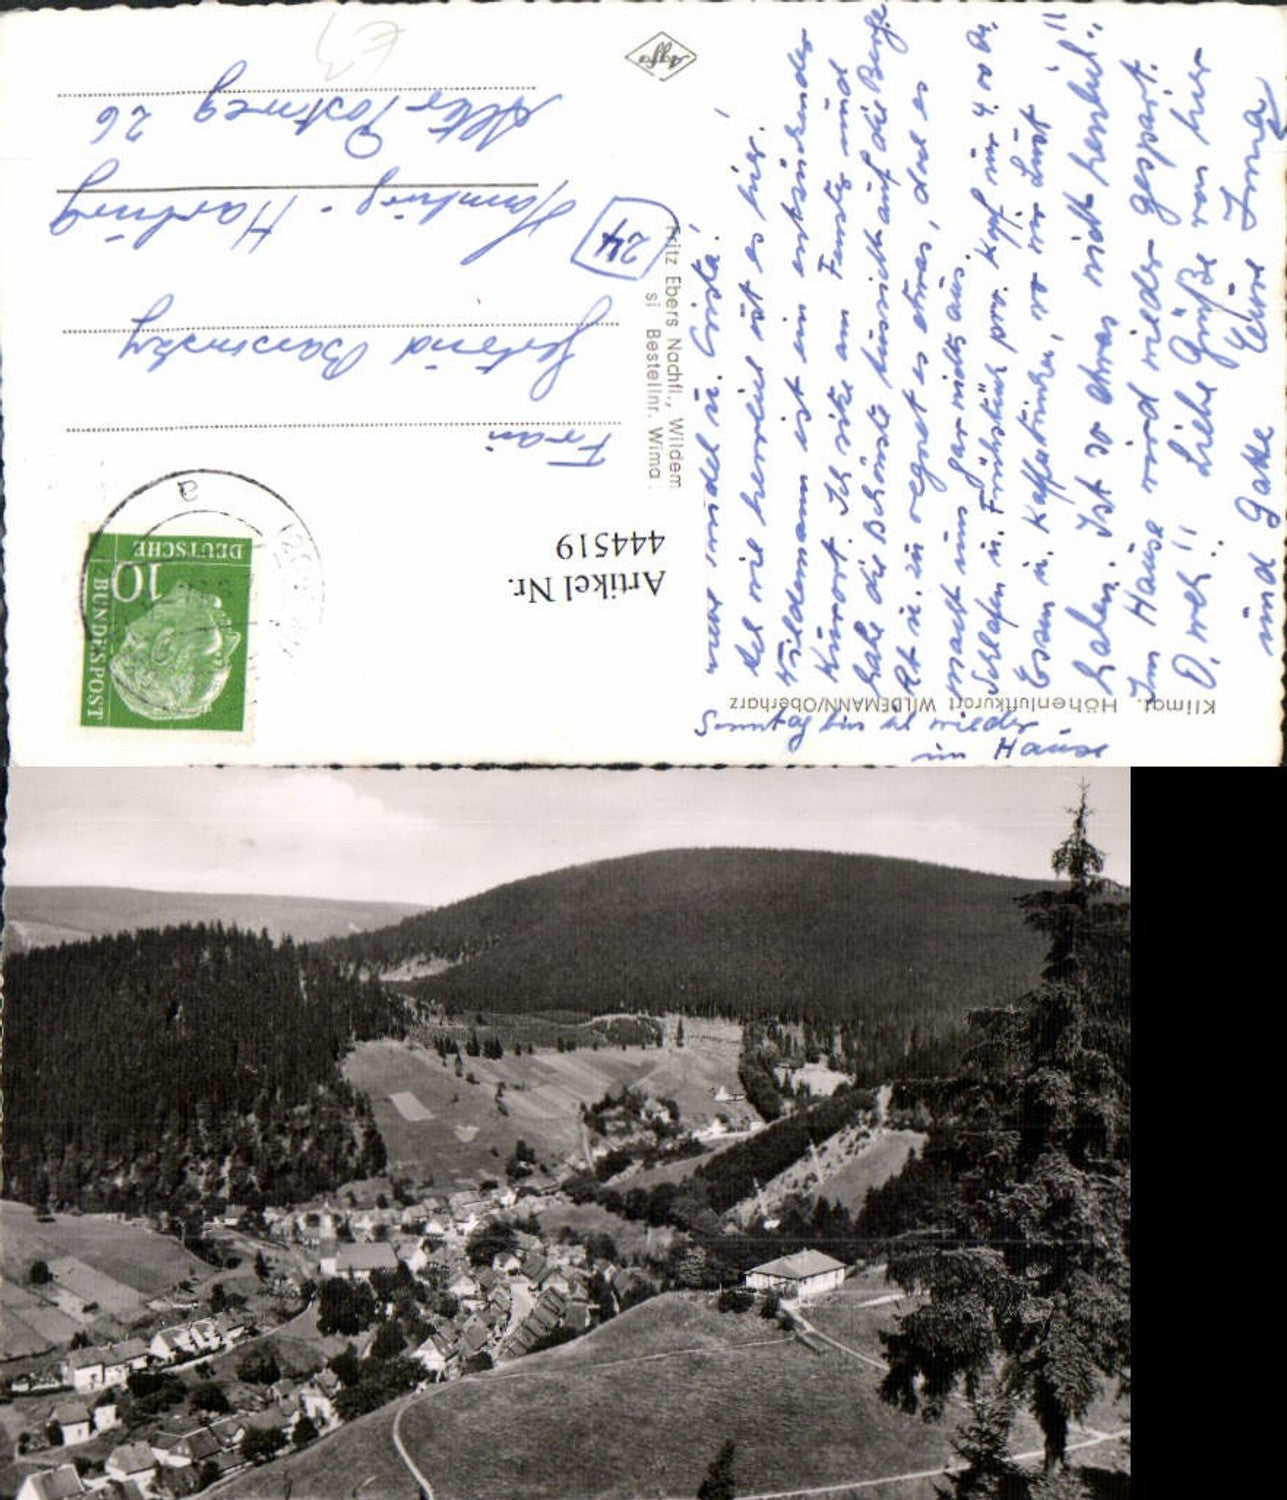 Klimat. Höhenluftkurort WILDEMANN/Oberharz
Fritz Ebers Nachfl., Wildem
si Bestellnr. Wima
Agfa
Artikel Nr.
444519
DEUTSCHE
BUNDESPOST
10
a
Frau
Gertrud
24
Hamburg-Harburg
Alter Postweg 26
Ach wie herrlich ist es hier!
Wildemann ist ein entzückender
Kurort. Ich sitze am Fenster und
habe die schönste Aussicht auf die Berge.
Ab u. zu regnet es etwas, doch es
macht uns gar nichts aus.
Schlafen u. Frühstück pro Kopf nur 4.00 DM
Essen u. Kaffeetrinken, wo wir Lust
haben. Ist so etwas nicht herrlich"!!
Im Hause wird wieder gespart.
O, weh!! Liebe Grüße von hier
und Gatte Eure Irma
Sonntag bin ich wieder
im Hause